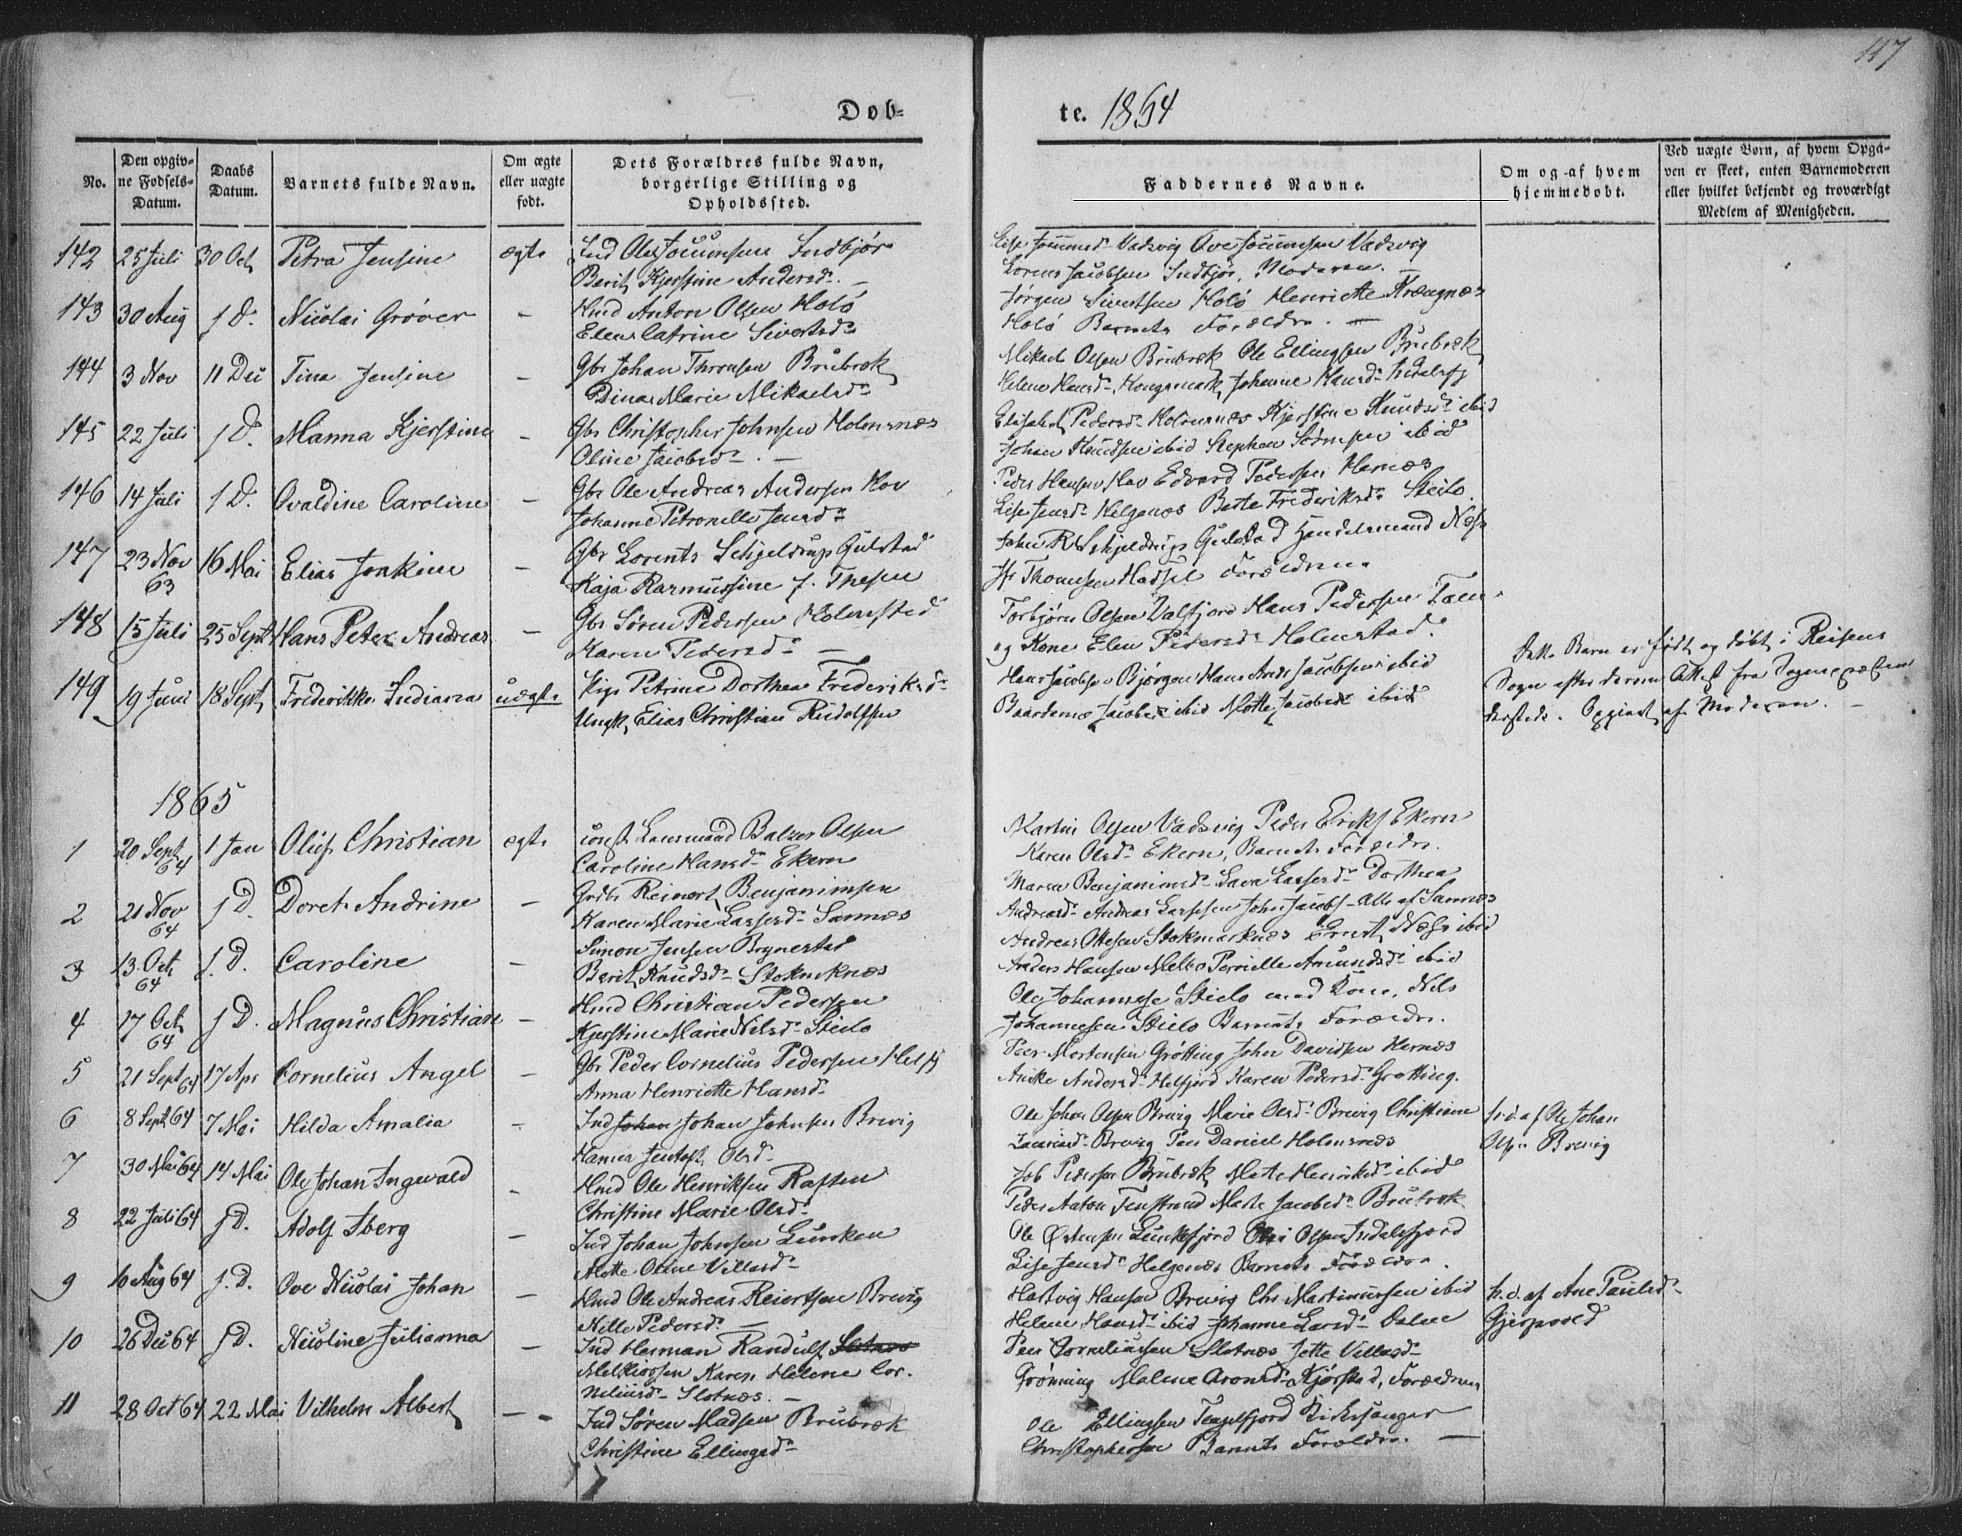 117
Døb-
te. 1864
No.
Den opgiv-
ne Fødsels-
Datum.
Daabs
Datum.
Barnets fulde Navn.
Om ægte
eller uægte
født.
Dets Forældres fulde Navn,
borgerlige Stilling og
Opholdssted.
Faddernes Navne.
Om og af hvem
hjemmedøbt.
Ved uægte Børn, af hvem Opga-
ven er skeet, enten Barnemoderen
eller hvilket bekjendt og troværdigt
Medlem af Menigheden.
142 25 Juli 30 Oct Petra Jensine ægte Ind Ole Indbjør
Berit Kjerstine Andersd.
Vadsvig Ove Vadsvig
Lorens Jacobsen Indbjør, Moderen. —
143 30 Aug J D. Nicolai Grøver — Hmd Anton Olsen Holø
Elen Catrine Sivertsd
Jørgen Sivertsen Holø Henriette Krængnæs
Holø Barnets Forældre. —
144 3 Nov 11 Dec Tina Jensine — Gbr Johan Thronsen Brubræk
Dina Marie Mikaelsd
Mikael Olsen Brubræk Ole Ellingsen Brubræk
Helene Hansd Haugsmark Johanne Hansd
145 22 Juli J D. Manna Kjerstine — Gbr Christopher Johnsen Holmsnæs
Oline Jacobsd — . —
Elisabet Pedersd Holmsnæs Kjerstine Knudsd ibid
Johan Knudsen ibid Stephen ibid
146 14 Juli J D. Ovaldine Caroline — Gbr Ole Andreas Andersen Hov
Johanne Petronelle Jensd
Peder Hansen Hov Edvard Pedersen Hanæs
Lise Jensd Helgenæs Berte Frederiksd Steilo
147 23 Nov 63 16 Mai Elias Joakim — Gbr Lorents Schjeldrup Gulstad
Kaja Rasmussine f. Thesen
John R Schjeldrup Gulstad Handelsmand
Thomesen Hadsel Forældrene
148 15 Juli 25 Sept Hans Peter Andreas — Gbr Søren Pedersen Holmsted
Karen Pedersd —
Torbjørn Olsen Valfjord Hans Pedersen
og Kone Elen Pedersd Holmstad.
149 19 Juni 18 Sept Frederikke Indiana uægte Pige Petrine Dorthea Frederiksd
Ungk Elias Christian Rudolfsen
Hans Jacobsen Bjørgen Hans Andr Jacobsen ibid
Jacobsd ibid Mette Jacobsd ibid
Dette Barn er født og døbt i Reisens
Sogn efter derom Attest fra Sognepresten
dersteds. Opgivet af Moderen. —
1865
1 20 Sept 64 1 Jan Oluf Christian ægte const Lensmand Balzer Olsen
Caroline Hansd Ekern
Martin Olsen Vadsvig Peder Eriks Ekern
Karen Olsd Ekern, Barnets Forældre.
2 21 Nov 64 J D. Doret Andrine — Gdbr Reinert Benjaminsen
Karen Marie Lassesd Sannæs
Maren Benjaminsd Sara Lassesd Dorthea
Andreasd Andreas Lassesen John Jacobs alle af Sannæs
3 13 Oct 64 J. D. Caroline — Simon Jensen Brynestad
Berit Knudsd Stokmknæs
Andreas Ottesen Stokmarknæs Ernst Næss ibid
Anders Hansen Melbo Pernille Amundsd ibid
4 17 Oct 64 J D. Magnus Christian — Hmd Christian Pedersen
Kjerstine Marie Nelsd Steilo
Ole Johannese Steilo med Kone, Nils
Johannesen Steilo Barnets Forældre.
5 21 Sept 64 17 Apr Cornelius Angel — Gbr Peder Cornelius Pedersen Helfj
Anna Henriette Hansd
Peer Mortensen Grøtting John Davidsen Hernæs
Anike Andersd Helfjord Karen Pedersd Grøtting.
6 8 Sept 64 7 Mai Hilda Amalia — Ind Johan Johan Johnsen Brevig
Hanna Jentoft Olsd
Ole Johan Olsen Brevig Marie Olsd Brevig Christiane
Zacariasd Brevig Peer Daniel Holmsnæs
h.d. af Ole Johan
Olsen Brevig
7 30 Mai 64 14 Mai Ole Johan Ingvald — Hmd Ole Henriksen Raften
Christine Marie Olsd
Job Pedersen Brubræk Mette Henriksd ibid
Peder Anton Fenstrand Mette Jacobsd Brubræk
8 22 Juli 64 J D. Adolf Iberg — Ind Johan Johnsen Lunken
Mette Oline Villasd
Ole Østensen Lunkefjord Olsen Indalsfjord
Lise Jensd Helgenæs Barnets Forældre.
9 16 Aug 64 J. D. Ove Nicolai Johan — Hmd Ole Andreas Reiertsen Brevig
Nille Pedersd —
Hartvig Hansen Brevig Chr Martinussen ibid
Helene Hansd ibid Johanne Larsd Dalne
h.d. af Ane Paulsd
10 26 Dec 64 J D. Nicoline Julianna — Ind Herman Randulf Slotnæs
Melkiorsen Karen Helene Cor-
neliusd Slotnæs. —
Peer Corneliussen Slotnæs Jette Villasd
Grønning Malene Aronsd Kjørstad, Forældrene
11 28 Oct 64 22 Mai Vilhelm Albert — Ind Søren Madsen Brubræk
Christine Ellingsd
Ole Ellingsen Tengelfjord Kirkesanger
Christophersen Barnets Forældre. —